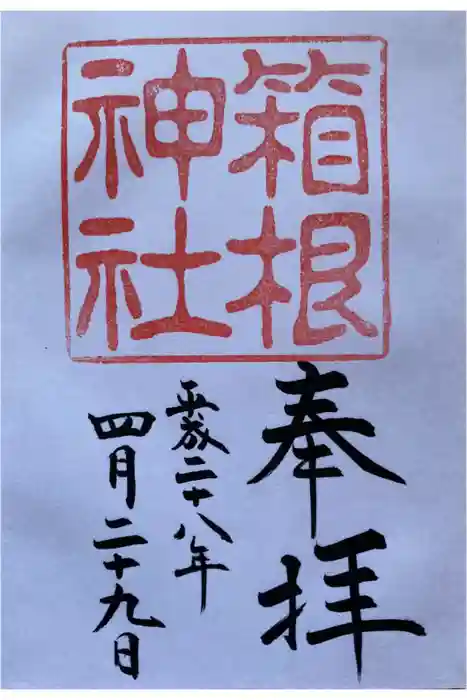 箱根
神社
奉拝
平成二十八年
四月二十九日